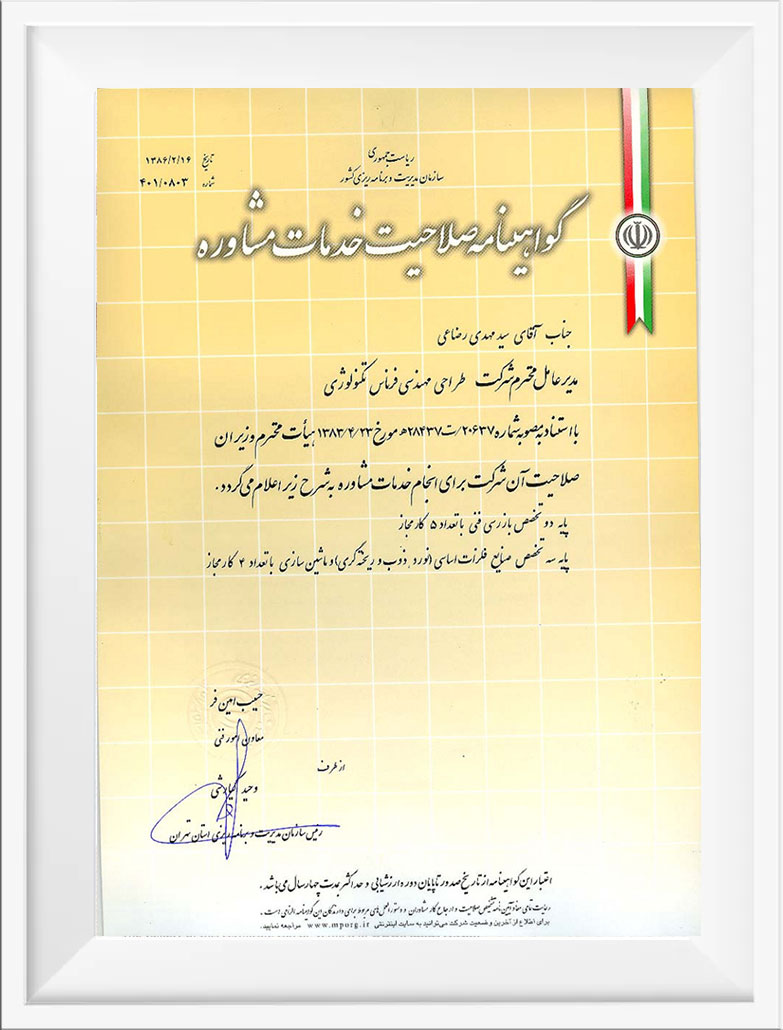 ریاست جمهوری
سازمان مدیریت و برنامه ریزی کشور
تاریخ ۱۳۸۶/۲/۱۶
شماره ۴۰۱/۰۸۰۳
گواهینامه صلاحیت خدمات مشاوره
جناب آقای سید مهدی رضاعی
مدیر عامل محترم شرکت طراحی مهندسی فرناس تکنولوژی
با استناد به مصوبه شماره ۲۰۶۳۷/ت۲۸۴۳۷ه مورخ ۱۳۸۳/۴/۲۳ هیأت محترم وزیران
صلاحیت آن شرکت برای انجام خدمات مشاوره به شرح زیر اعلام می گردد.
پایه دو تخصص بازرسی فنی با تعداد ۵ کار مجاز
پایه سه تخصص صنایع فلزات اساسی (نورد, ذوب و ریخته گری) و ماشین سازی با تعداد ۴ کار مجاز
حبیب امین فر
معاون امور فنی
از طرف
وحید
رئیس سازمان مدیریت و برنامه ریزی استان تهران
اعتبار این گواهینامه از تاریخ صدور تا پایان دوره ارزشیابی و حداکثر بمدت چهار سال می باشد.
رعایت تمامی مفاد آیین نامه تشخیص صلاحیت و ارجاع کار مشاوران و دستورالعمل های مربوط برای دارندگان این گواهینامه الزامی است.
برای اطلاع از آخرین وضعیت شرکت می‌توانید به سایت اینترنتی www.mporg.ir مراجعه نمایید.